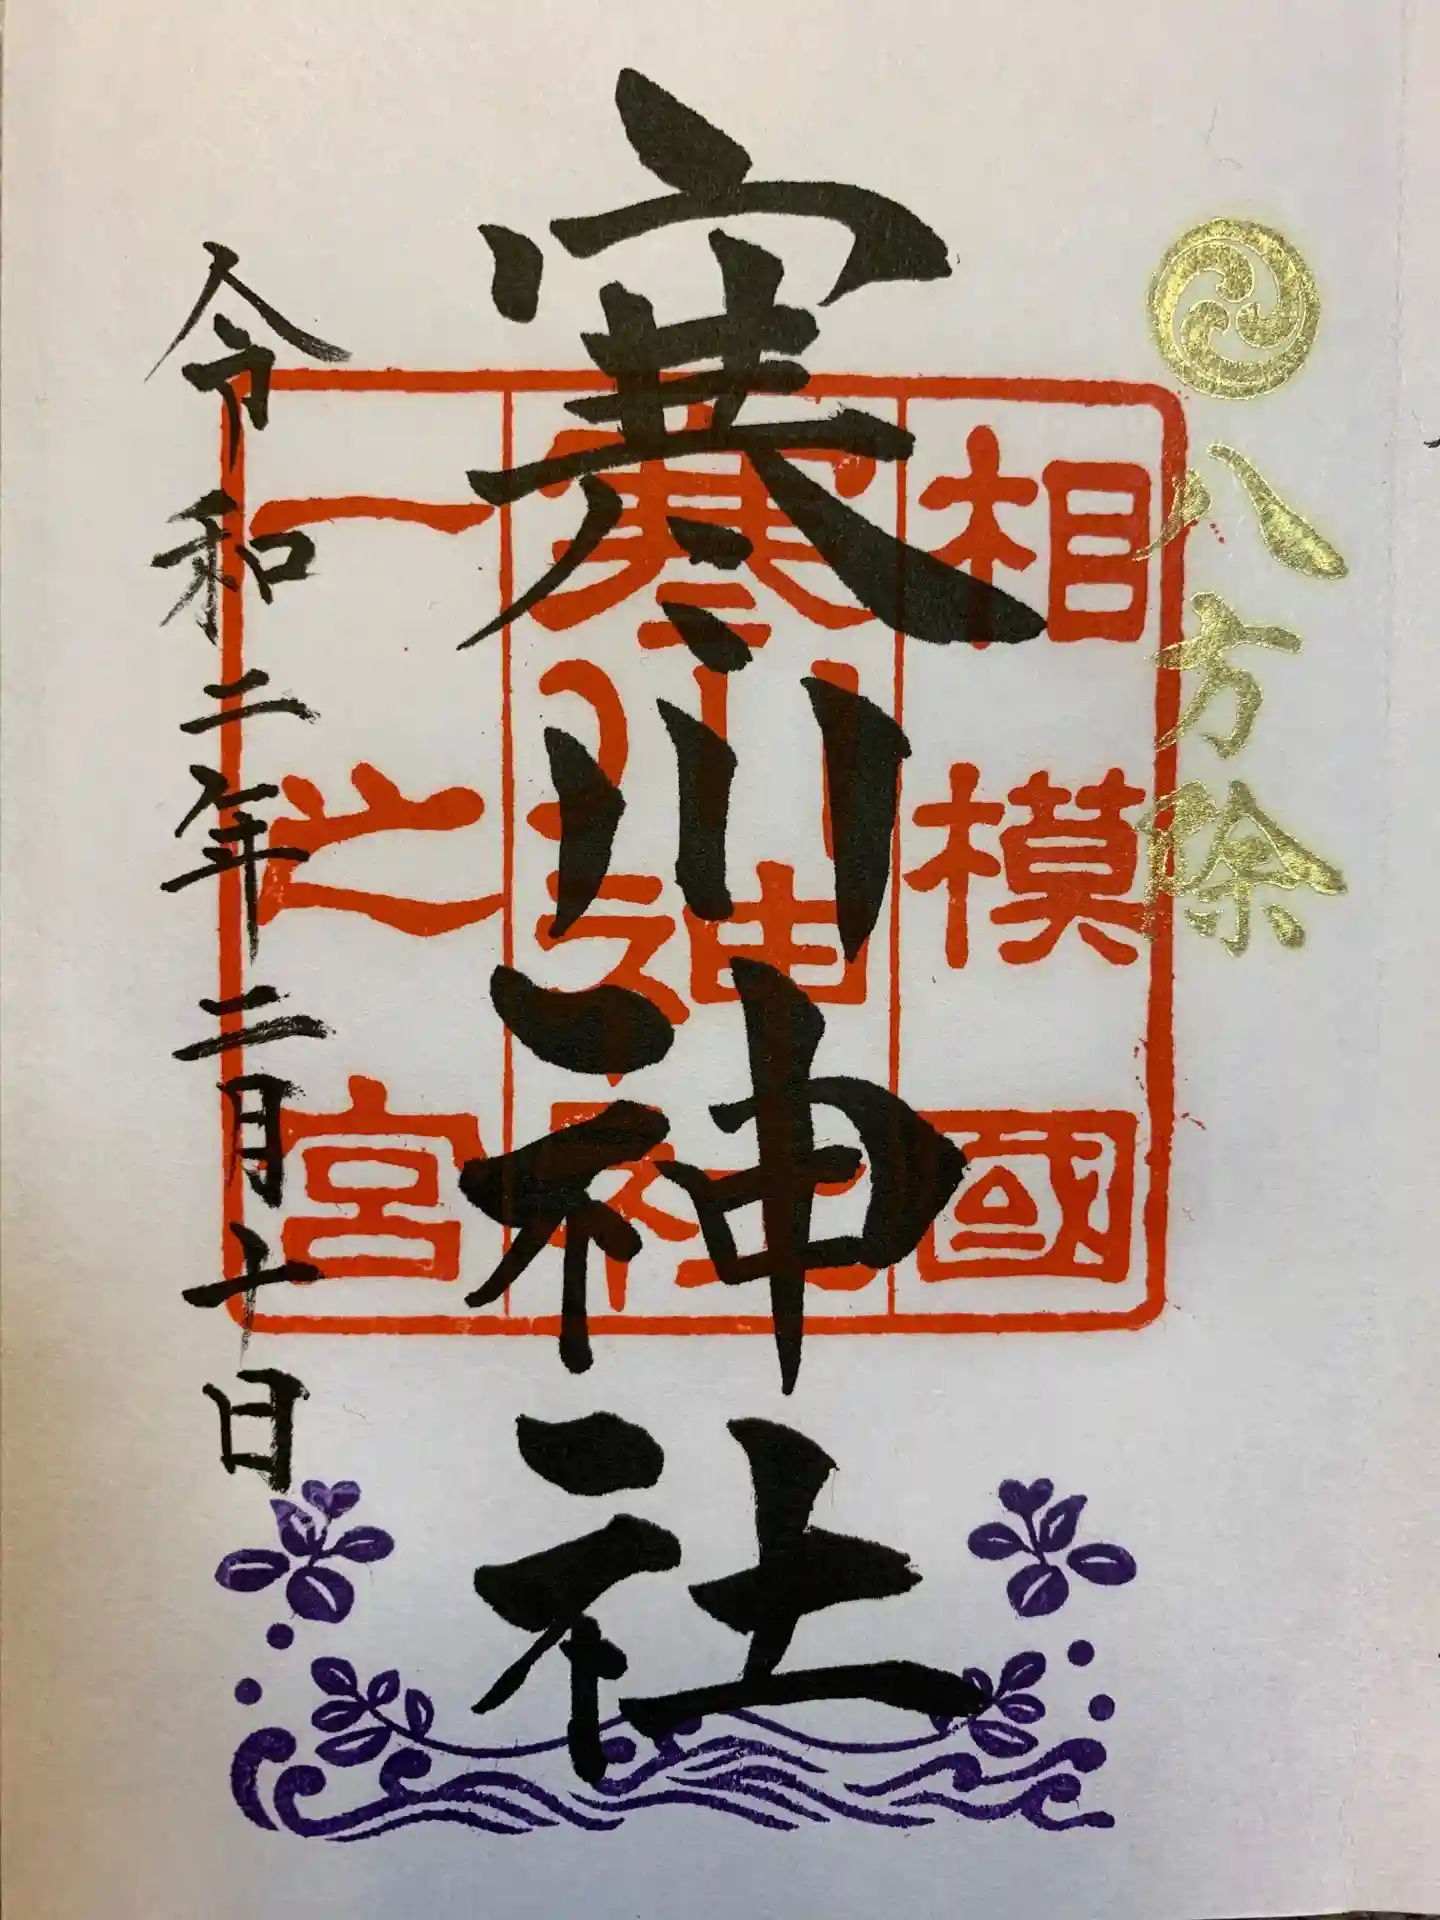 八方除
相模國
寒川神社
一之宮
寒川神社
令和二年二月十日